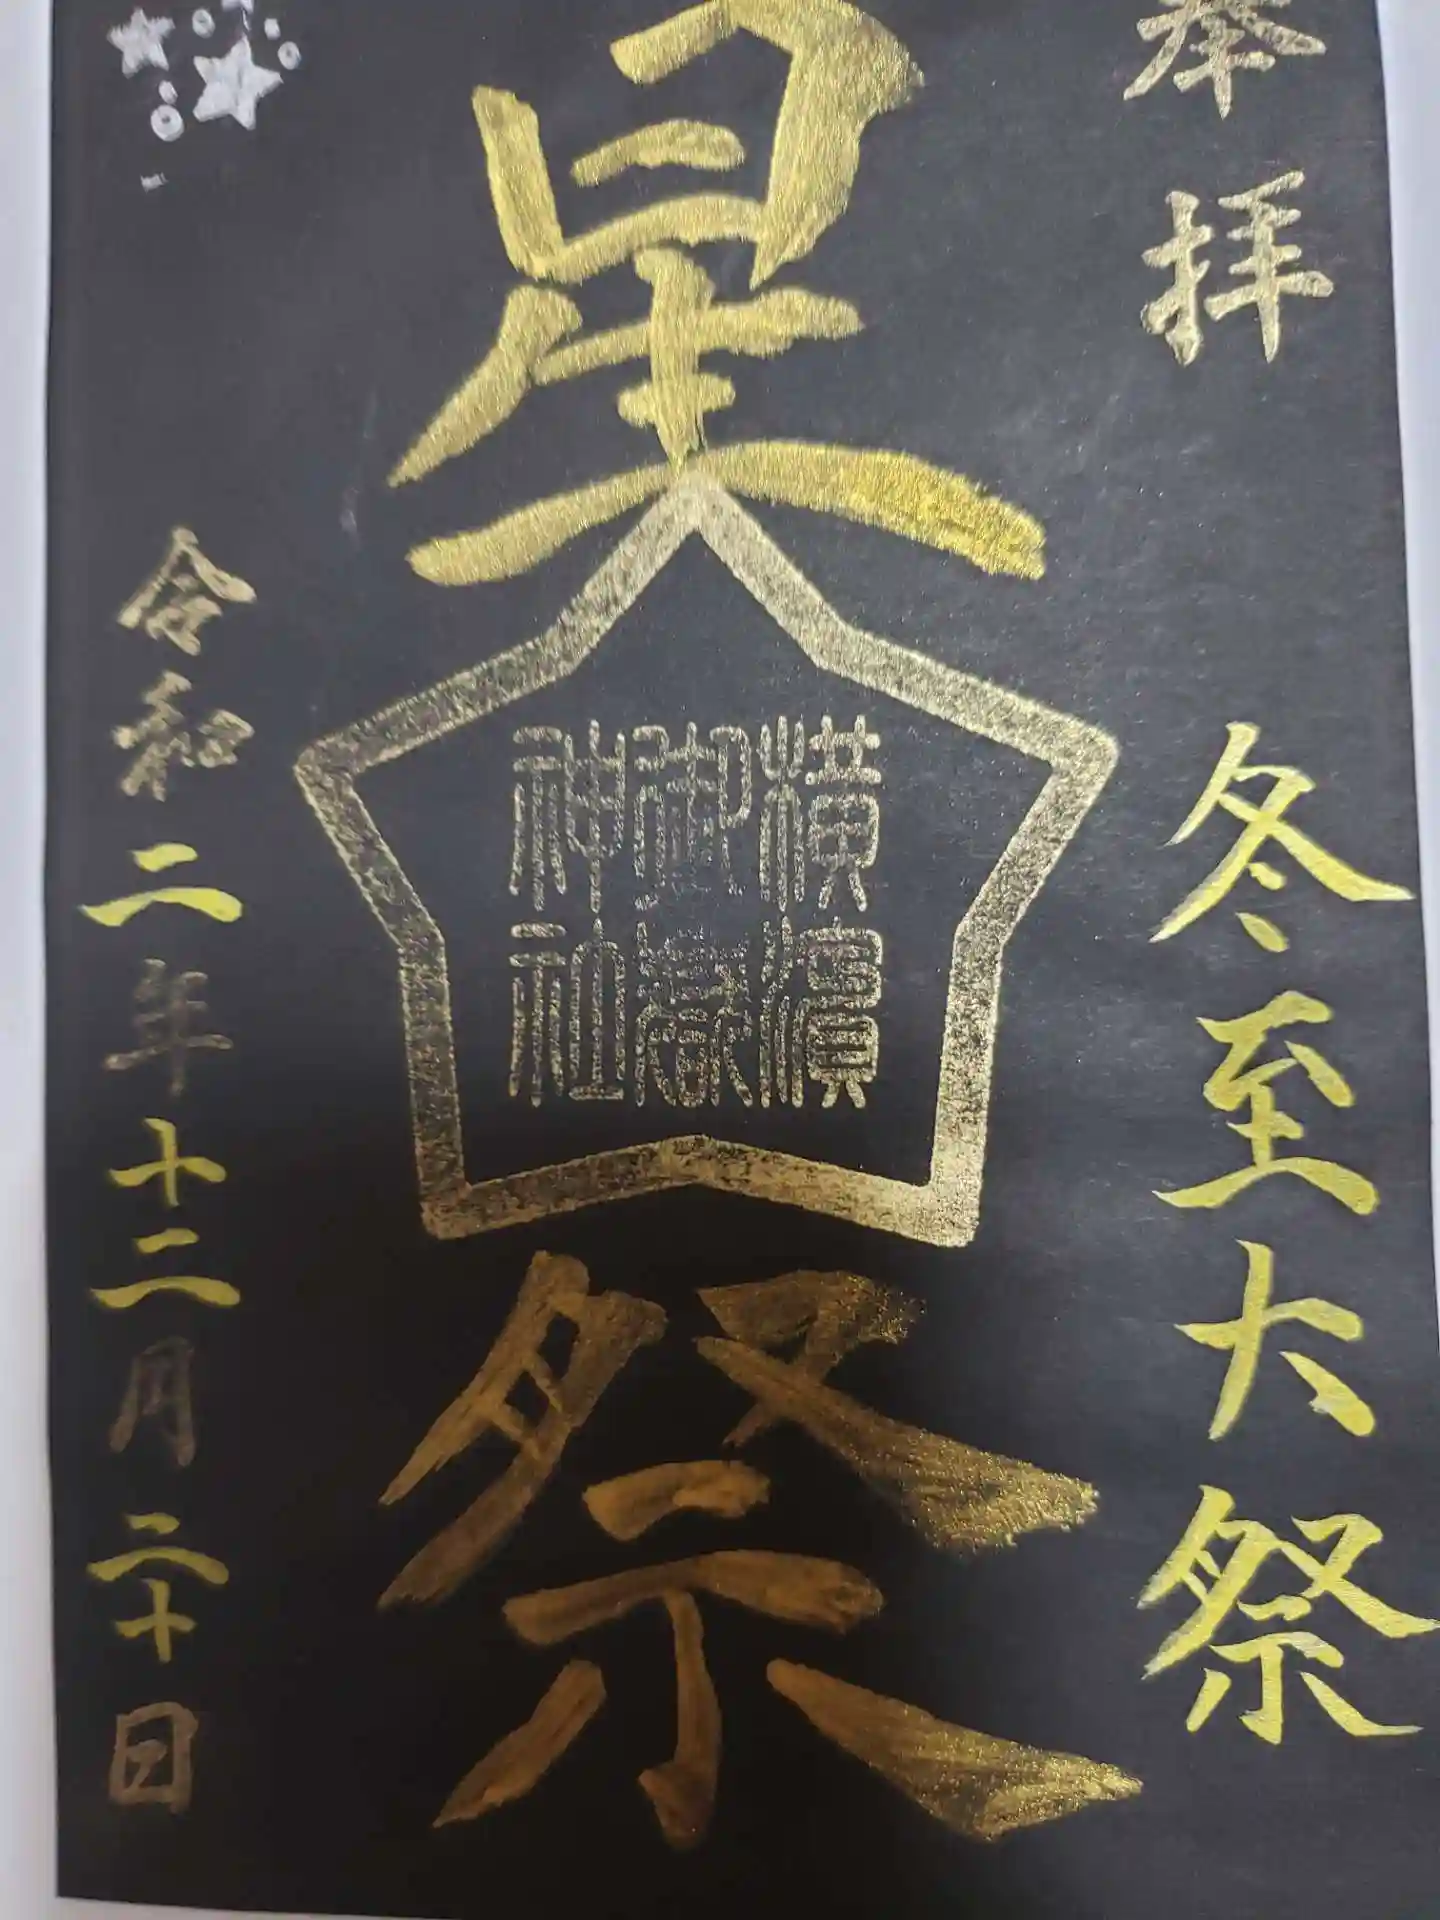 奉拝
冬至大祭
星祭
横濱
御嶽
神社
令和二年十二月二十日